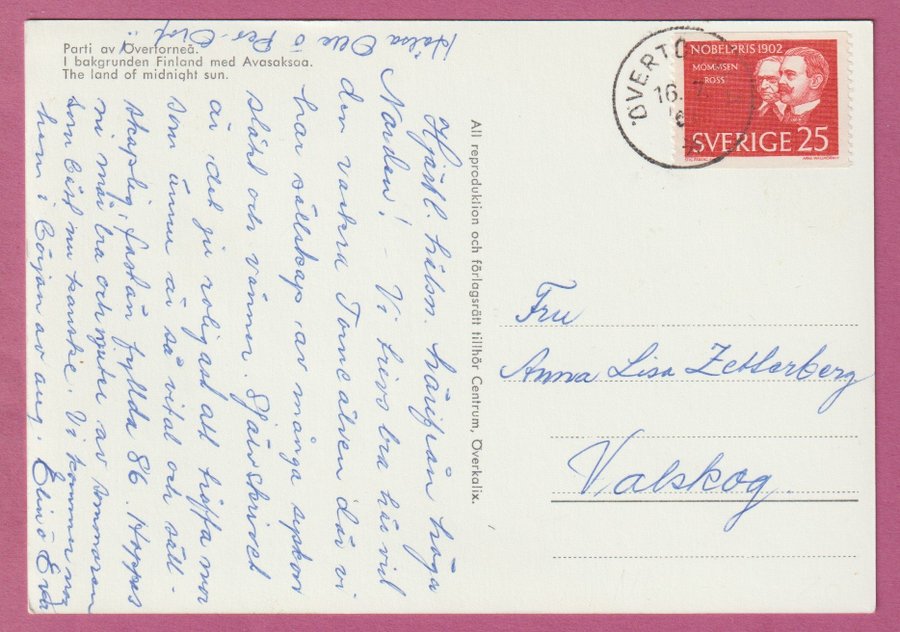 Parti av Övertorneå.
I bakgrunden Finland med Avasaksaa.
The land of midnight sun.
Hjärtl. hälsn. härifrån höga
Norden! - Vi trivs bra här vid
den vackra Torne älven där vi
har sällskap av många syskon
släkt och vänner. Självskrivet
är det ju roligast att träffa mor
som ännu är så vital och säll-
skaplig, fastän fyllda 86. Hoppas
ni mår bra och njuter av sommaren
som bäst nu kanske. Vi kommer nog
hem i början av aug. Elin o Eva
Hälsa Olle o
Per-Olof
All reproduktion och förlagsrätt tillhör Centrum, Överkalix.
ÖVERTO
16.
NOBELPRIS 1902
MOMMSEN
ROSS
SVERIGE 25
Fru
Anna Lisa Zetterberg
Valskog